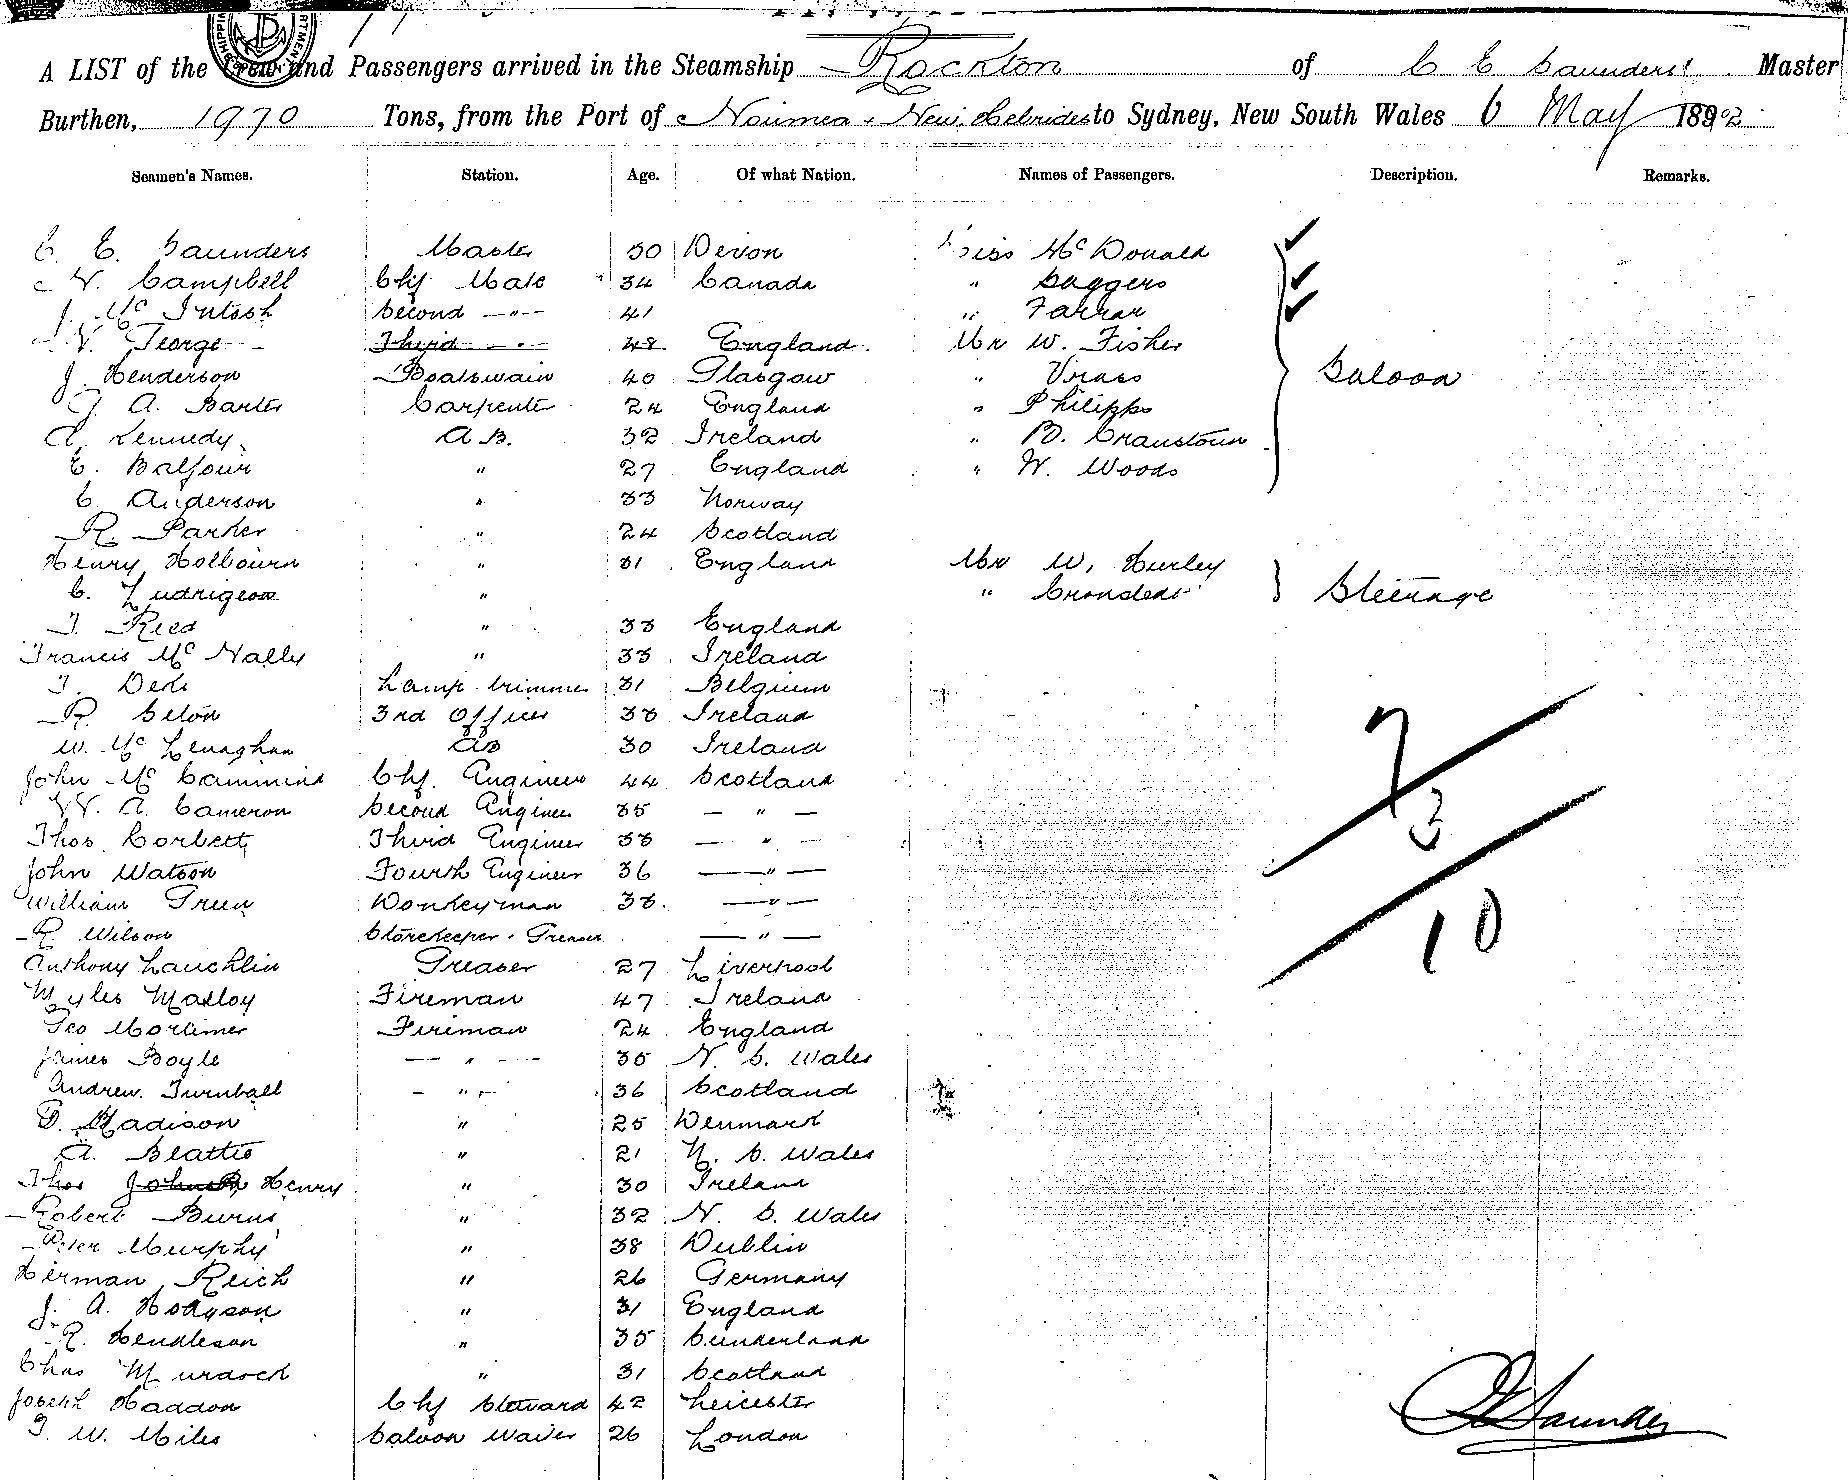 A LIST of the Crew and Passengers arrived in the Steamship Rockton of C E Saunders Master
Burthen, 1970 Tons, from the Port of Noumea & New Hebrides to Sydney, New South Wales 6 May 1892
Seamen's Names. Station. Age. Of what Nation. Names of Passengers. Description. Remarks.
C. E. Saunders Master 30 Devon Miss McDonald
N. Campbell Chf Mate 34 Canada " Daggers
J. McIntosh Second " 41 " Farrar
George Third " 48 England Mr W. Fisher
J. Henderson Boatswain 40 Glasgow " Saloon
A. Barter Carpenter 24 England " Philipps
A. Kennedy A.B. 32 Ireland " B. Cranstoun
E. Balfour " 27 England " W. Woods
C. Anderson " 33 Norway
R. Parker " 24 Scotland
Henry Holbourn " 31 England Mr W. Hurley
C. " " Steerage
T. Reed " 33 England
Francis McNally " 33 Ireland
Lamp trimmer 31 Belgium
R. Seton 3rd Officer 38 Ireland
W. McLenaghan AB 30 Ireland
John McCammind Chf. Engineer 44 Scotland
W. A. Cameron Second Engineer 35 "
Thos. Corbett Third Engineer 38 "
John Watson Fourth Engineer 36 "
William Green Donkeyman 38. "
R. Wilson Storekeeper & Greaser "
Anthony Lauchlin Greaser 27 Liverpool
Myles Malloy Fireman 47 Ireland
Geo Mortimer Fireman 24 England
James Boyle " 35 N. S. Wales
Andrew Turnball " 36 Scotland
D. Madison " 25 Denmark
A. Beattie " 21 N. S. Wales
Thos Johnson Henry " 30 Ireland
Robert Burns " 32 N. S. Wales
Peter Murphy " 38 Dublin
Herman Reich " 26 Germany
J. A. Hodgson " 31 England
R. Hendleson " 35 Sunderland
Chas Murdoch " 31 Scotland
Joseph Haddon Chf Steward 42 Leicester
T. W. Miles Saloon Waiter 26 London
7
3
10
C E Saunders